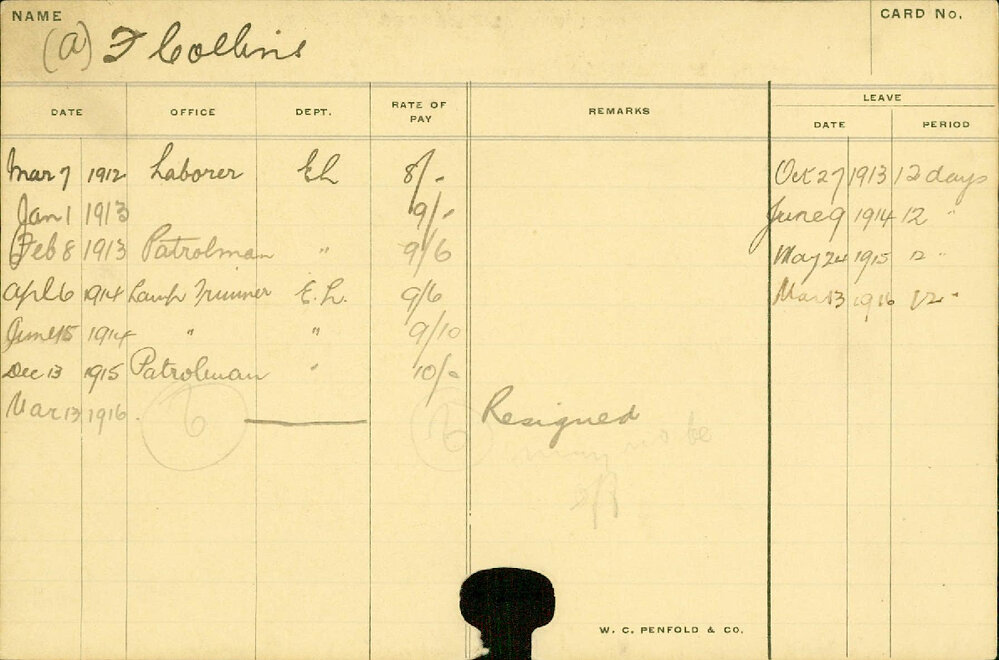 NAME
CARD No.
(A) F Collins
DATE OFFICE DEPT. RATE OF PAY REMARKS LEAVE
DATE PERIOD
Mar 7 1912 Laborer E L 8/- Oct 27 1913 12 days
Jan 1 1913 9/- June 9 1914 12 "
Feb 8 1913 Patrolman " 9/6 May 24 1915 12 "
Apl 6 1914 Lamp Trimmer E.L. 9/6 Mar 13 1916 12 "
June 15 1914 " " 9/10
Dec 13 1915 Patrolman " 10/-
Mar 13 1916 Resigned
W. C. PENFOLD & CO.